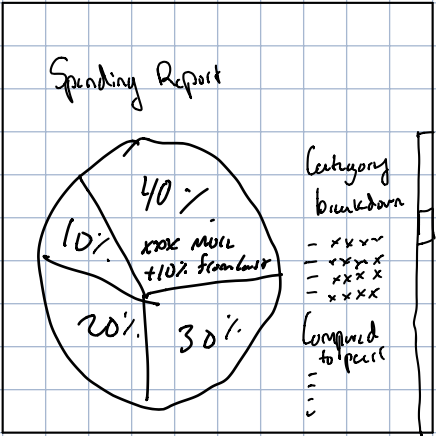 Spending Report
40%
10%
xxx more
+10% from last
20%
30%
Category
breakdown
- xxxx
- xxxx
- xxxx
- xxxx
Compared
to peers
-
-
-
-